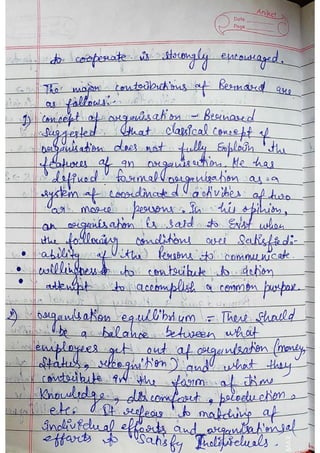 Aniket
Date
Page
to cooperate is strongly encouraged.
The major contributions of Bernard are
as follows:-
1) Concept of organisation - Bernard
suggested that classical concept of
organisation does not fully explain the
features of an organisation. He has
defined formal organisation as a
system of coordinated activities of two
or more persons. In his opinion,
an organisation is said to exist when
the following conditions are satisfied:-
• ability of the persons to communicate
• willingness to contribute to action
• attempt to accomplish a common purpose.
2) organisation equilibrium = There should
be a balance between what
employees get out of organisation (money,
status, recognition) and what they
contribute in the form of time
knowledge, discomfort, production,
etc. It refers to matching of
Individual efforts and organisational
efforts to satisfy Individuals.